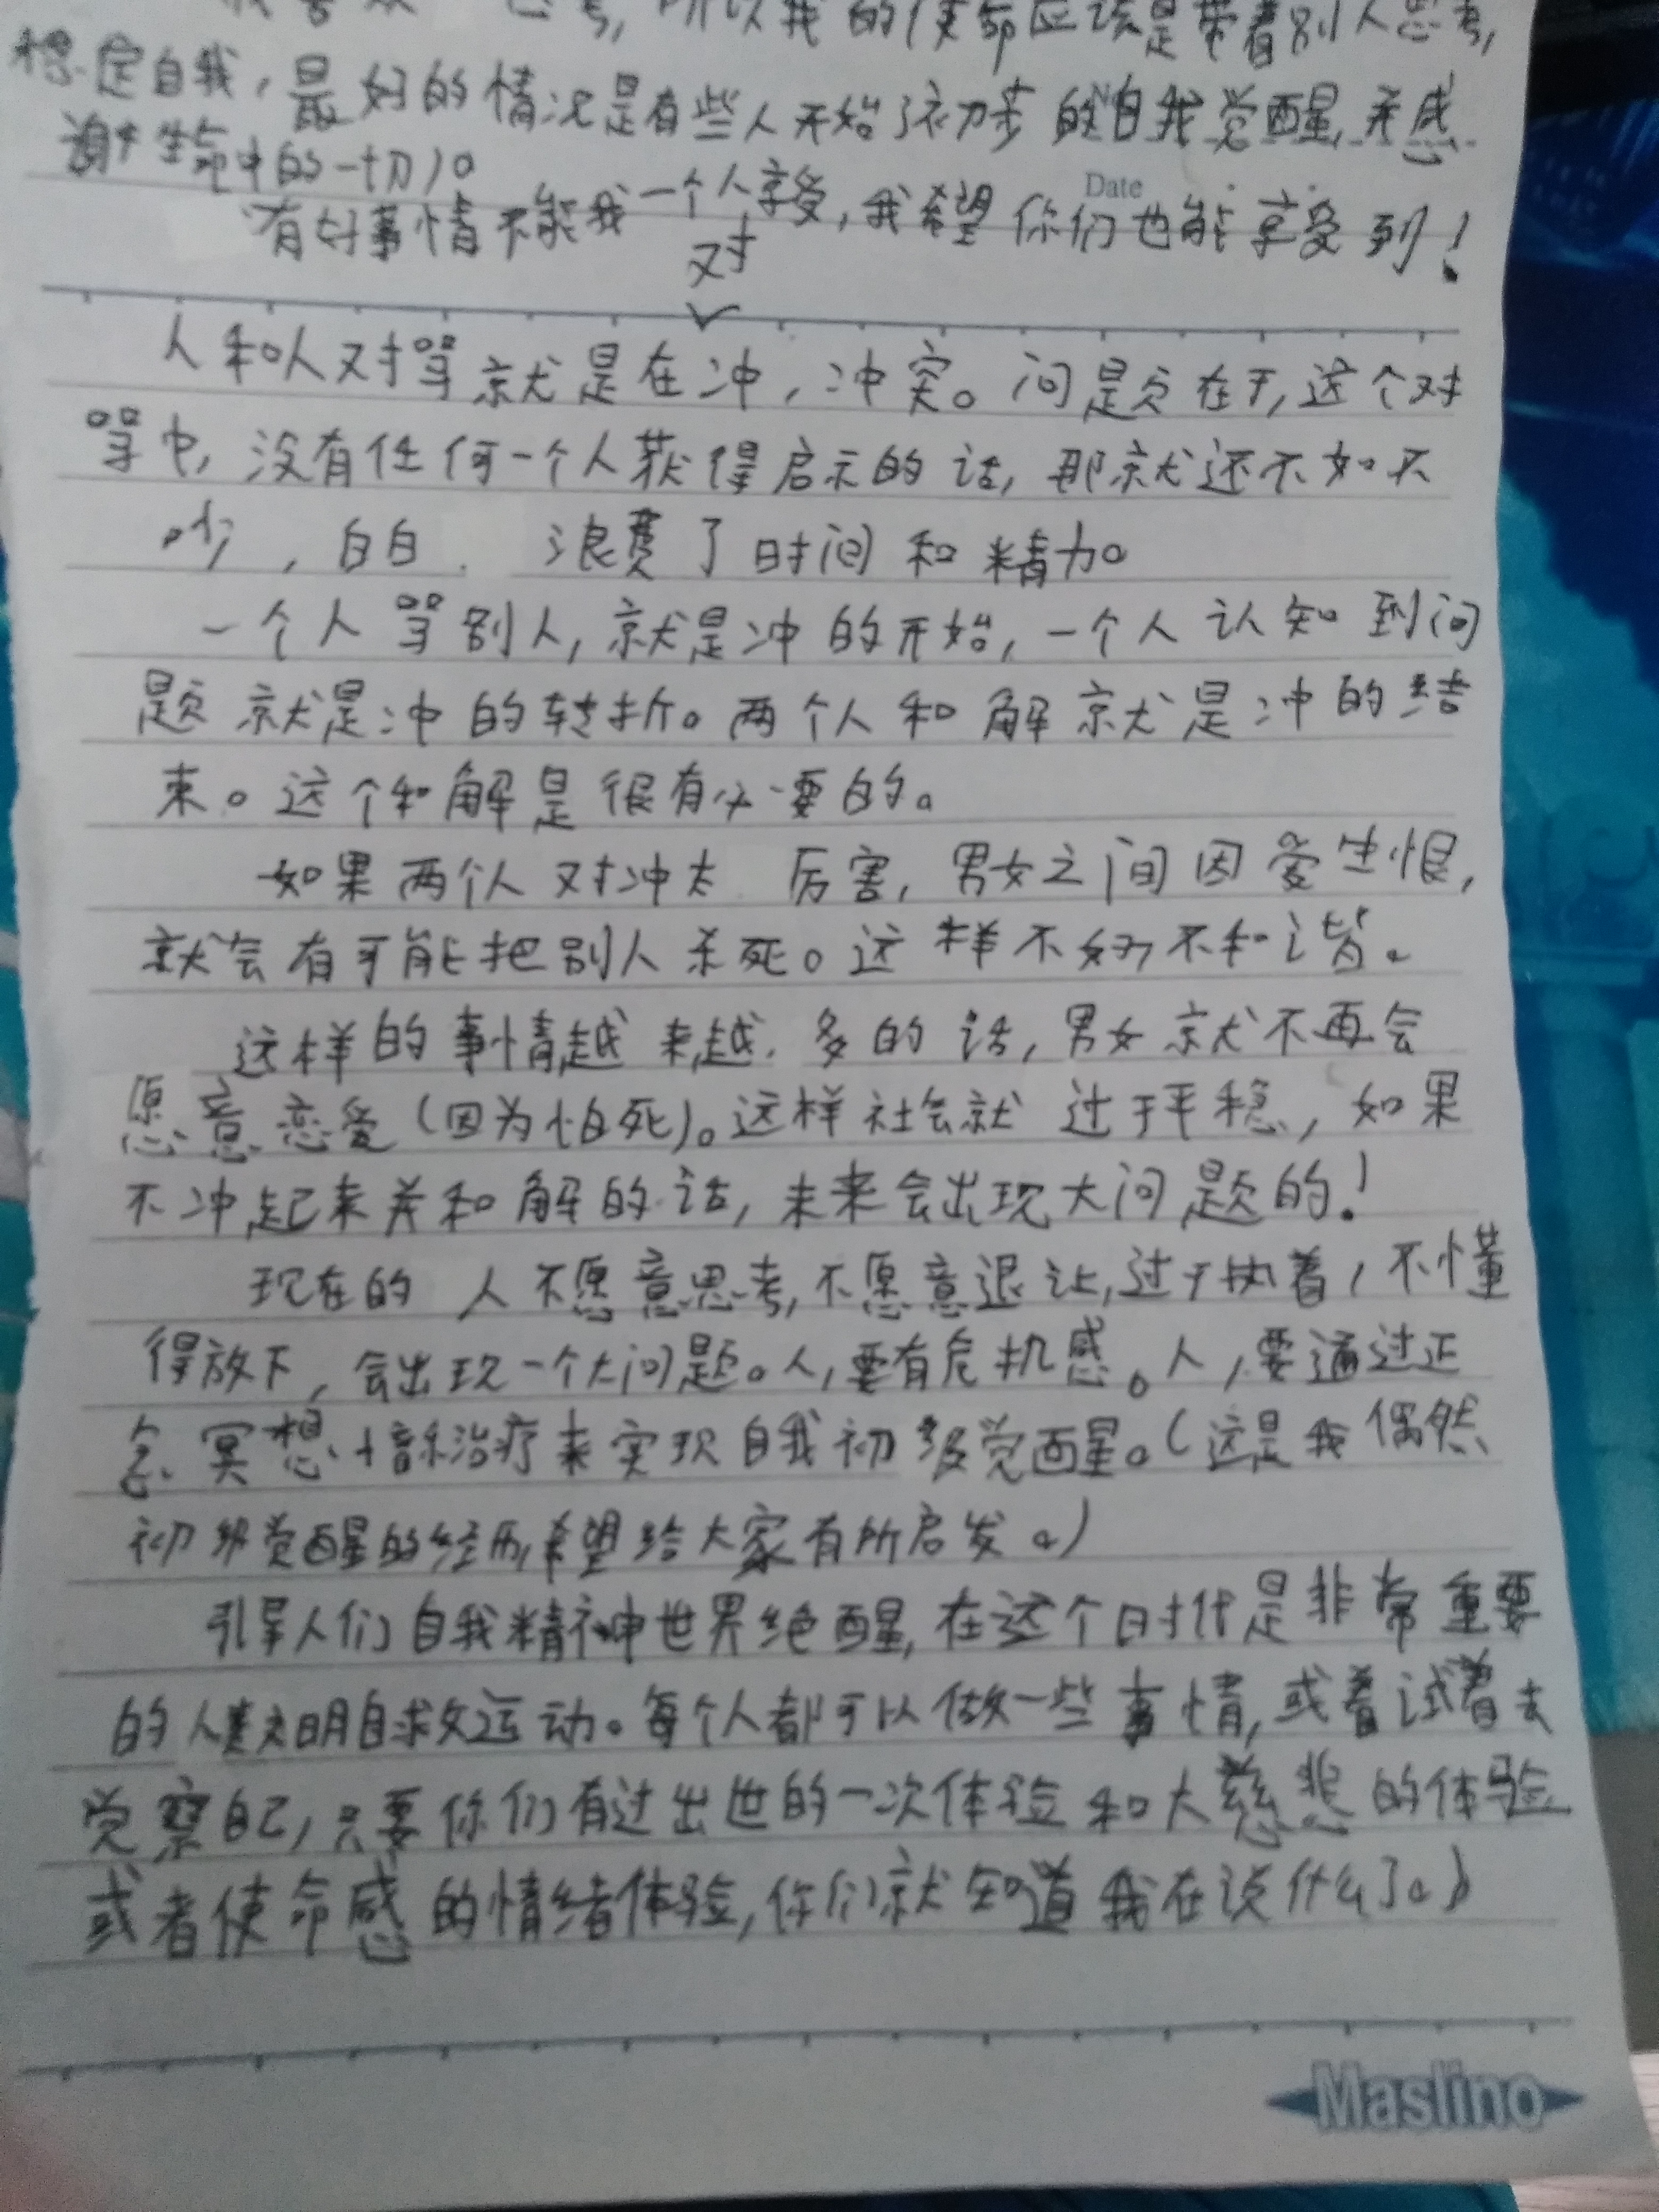 考，所以我的使命应该是带着别人思考，
稳定自我，最好的情况是有些人开始了初步的自我觉醒，并感
谢生命中的一切）。
Date
有好事情不能我一个人享受，我希望你们也能享受到！
对
人和人对骂就是在冲，冲突。问题在于，这个对
骂中，没有任何一个人获得启示的话，那就还不如不
吵，白白浪费了时间和精力。
一个人骂别人，就是冲的开始，一个人认知到问
题就是冲的转折。两个人和解就是冲的结
束。这个和解是很有必要的。
如果两个人对冲太厉害，男女之间因爱生恨，
就会有可能把别人杀死。这样不好，不和谐。
这样的事情越来越多的话，男女就不再会
愿意恋爱（因为怕死）。这样社会就过于平稳，如果
不冲起来并和解的话，未来会出现大问题的！
现在的人不愿意思考，不愿意退让，过于执着，不懂
得放下，会出现一个大问题。人，要有危机感。人，要通过正
念冥想治疗来实现自我初级觉醒。（这是我偶然
初级觉醒的经历，希望给大家有所启发。）
引导人们自我精神世界绝醒，在这个时代是非常重要
的人类文明自救运动。每个人都可以做一些事情，或着试着去
觉察自己，只要你们有过出世的一次体验和大慈悲的体验
或者使命感的情绪体验，你们就知道我在说什么了。）
Maslino